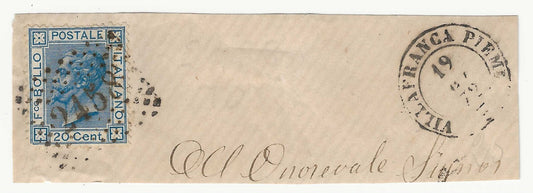 POSTALE
Fco BOLLO
ITALIANO
20 Cent.
VILLAFRANCA PIEM
19
All Onorevale Signor